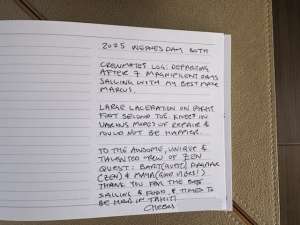 2025 WEDNESDAY 30TH
CREWMATES LOG: DEPARTING
AFTER 7 MAGNIFICENT DAYS
SAILING WITH MY BEST MATE
MARCUS.
LARGE LACERATION ON RIGHT
FOOT SECOND TOE. KNEES IN
VARIOUS MODES OF REPAIR &
COULD NOT BE HAPPIER.
TO THE AWSOME, UNIQUE &
TALENTED CREW OF ZEN
QUEST: BART (QUEST)
(ZEN) & MAMA (GOOD VIBES).
THANK YOU FOR THE BEST
SAILING & FOOD & TIMES TO
BE HAD IN TAHITI
CHEERS